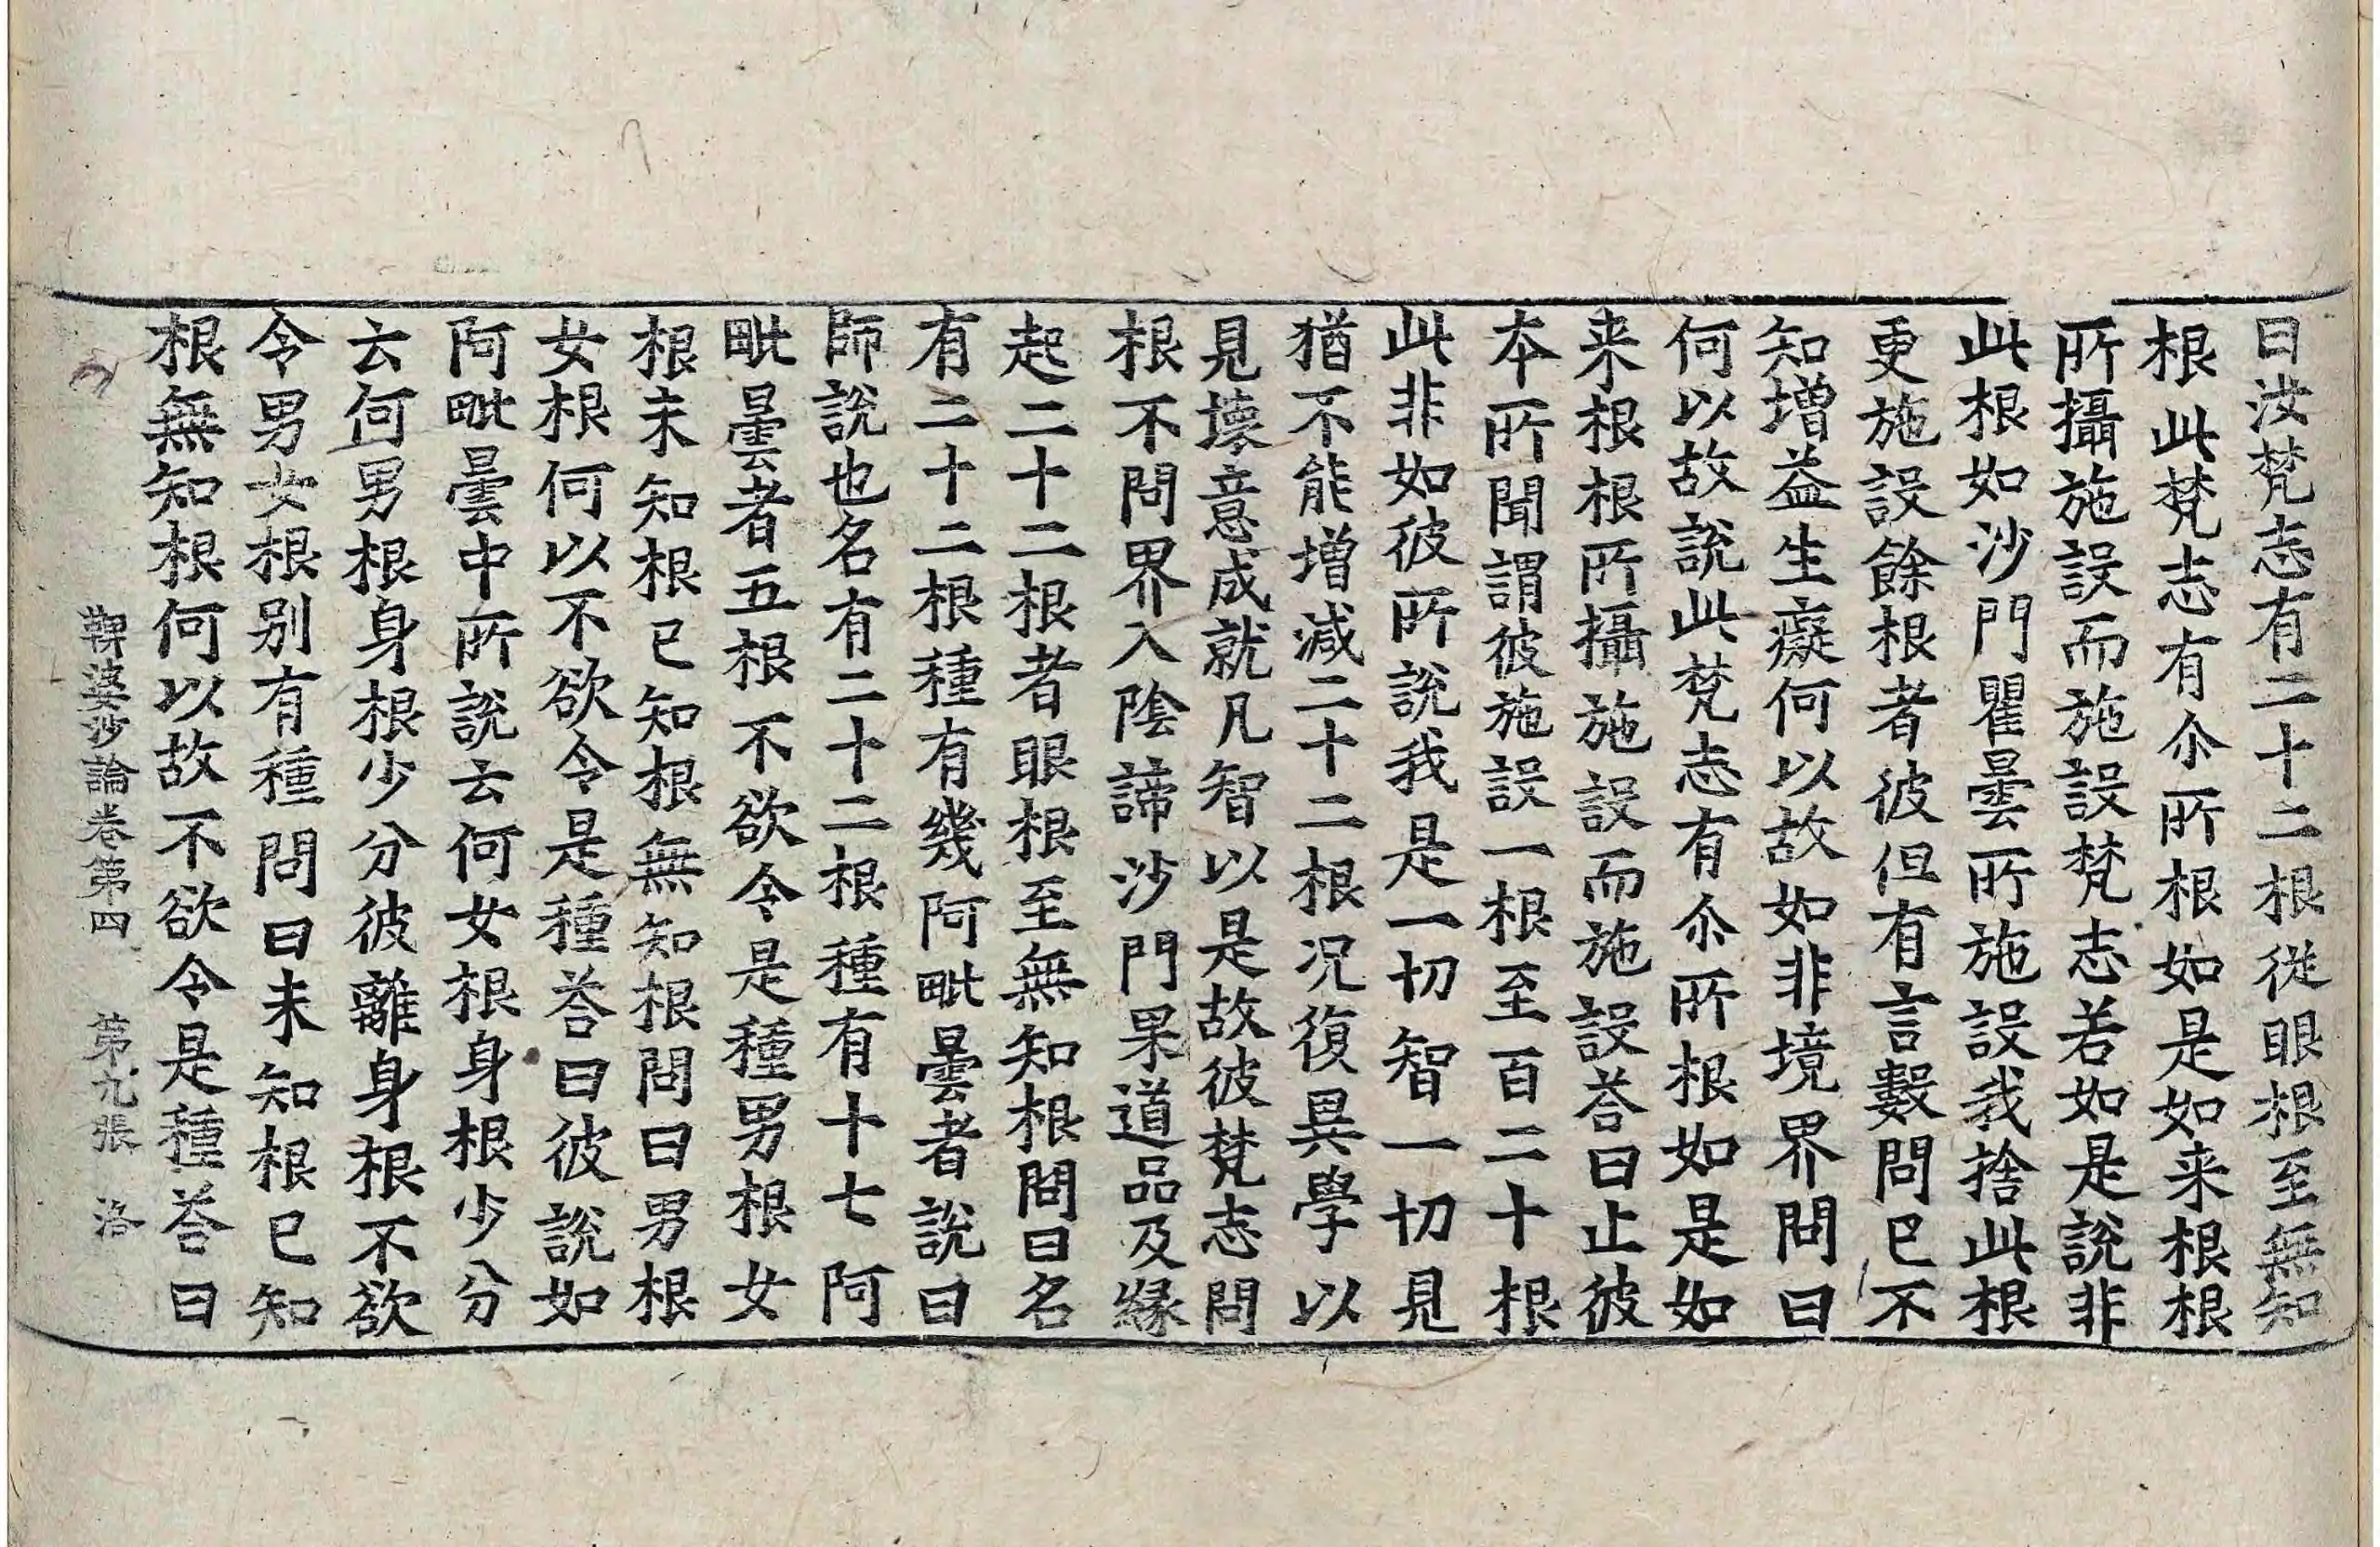 曰汝梵志有二十二根從眼根至無知
根此梵志有尒所根如是如来根根
所攝施設而施設梵志若如是說非
此根如沙門瞿曇所施設我捨此根
更施設餘根者彼但有言數問已不
知增益生癡何以故如非境界問曰
何以故說此梵志有尒所根如是如
来根根所攝施設而施設荅曰止彼
本所聞謂彼施設一根至百二十根
此非如彼所說我是一切智一切見
猶不能增減二十二根況復異學以
見壞意成就凡智以是故彼梵志問
根不問界入陰諦沙門果道品及緣
起二十二根者眼根至無知根問曰名
有二十二根種有幾阿毗曇者說曰
師說也名有二十二根種有十七阿
毗曇者五根不欲令是種男根女
根未知根已知根無知根問曰男根
女根何以不欲令是種荅曰彼說如
阿毗曇中所說云何女根身根少分
云何男根身根少分彼離身根不欲
令男女根別有種問曰未知根已知
根無知根何以故不欲令是種荅曰
鞞婆沙論卷第四 第九張 洛